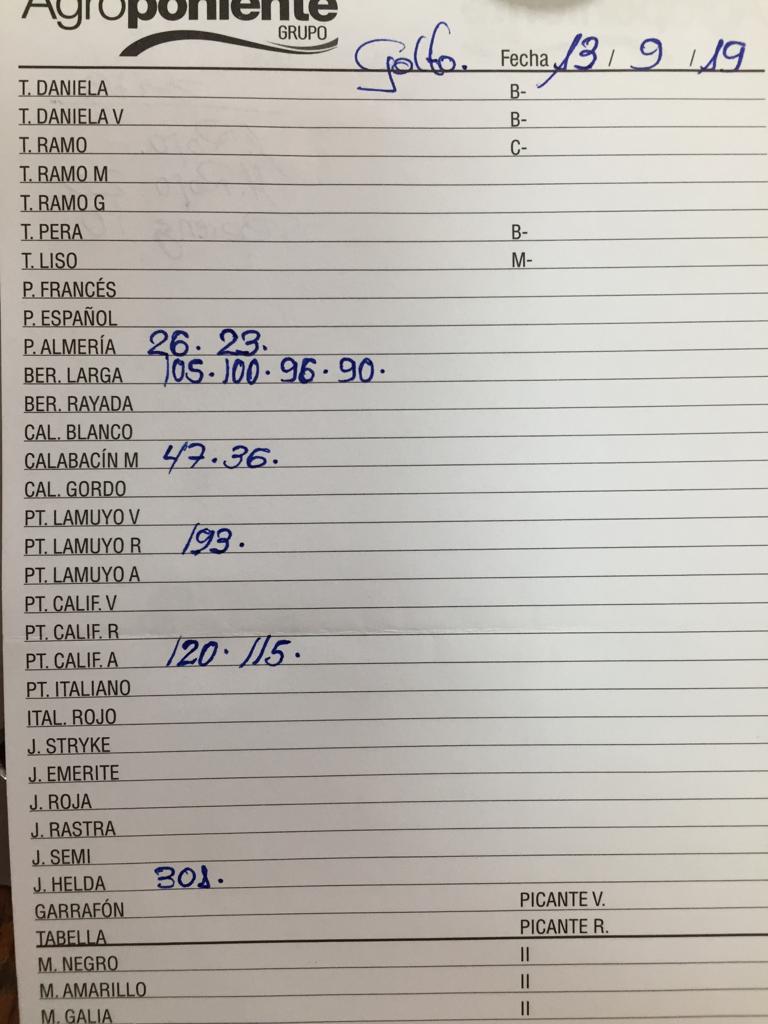 Agroponiente
GRUPO
Golfo. Fecha 13 / 9 / 19
T. DANIELA B-
T. DANIELA V B-
T. RAMO C-
T. RAMO M
T. RAMO G
T. PERA B-
T. LISO M-
P. FRANCÉS
P. ESPAÑOL
P. ALMERÍA 26. 23.
BER. LARGA 105. 100. 96. 90.
BER. RAYADA
CAL. BLANCO
CALABACÍN M 47. 36.
CAL. GORDO
PT. LAMUYO V
PT. LAMUYO R 193.
PT. LAMUYO A
PT. CALIF. V
PT. CALIF. R
PT. CALIF. A 120. 115.
PT. ITALIANO
ITAL. ROJO
J. STRYKE
J. EMERITE
J. ROJA
J. RASTRA
J. SEMI
J. HELDA 301.
GARRAFÓN PICANTE V.
TABELLA PICANTE R.
M. NEGRO II
M. AMARILLO II
M. GALIA II